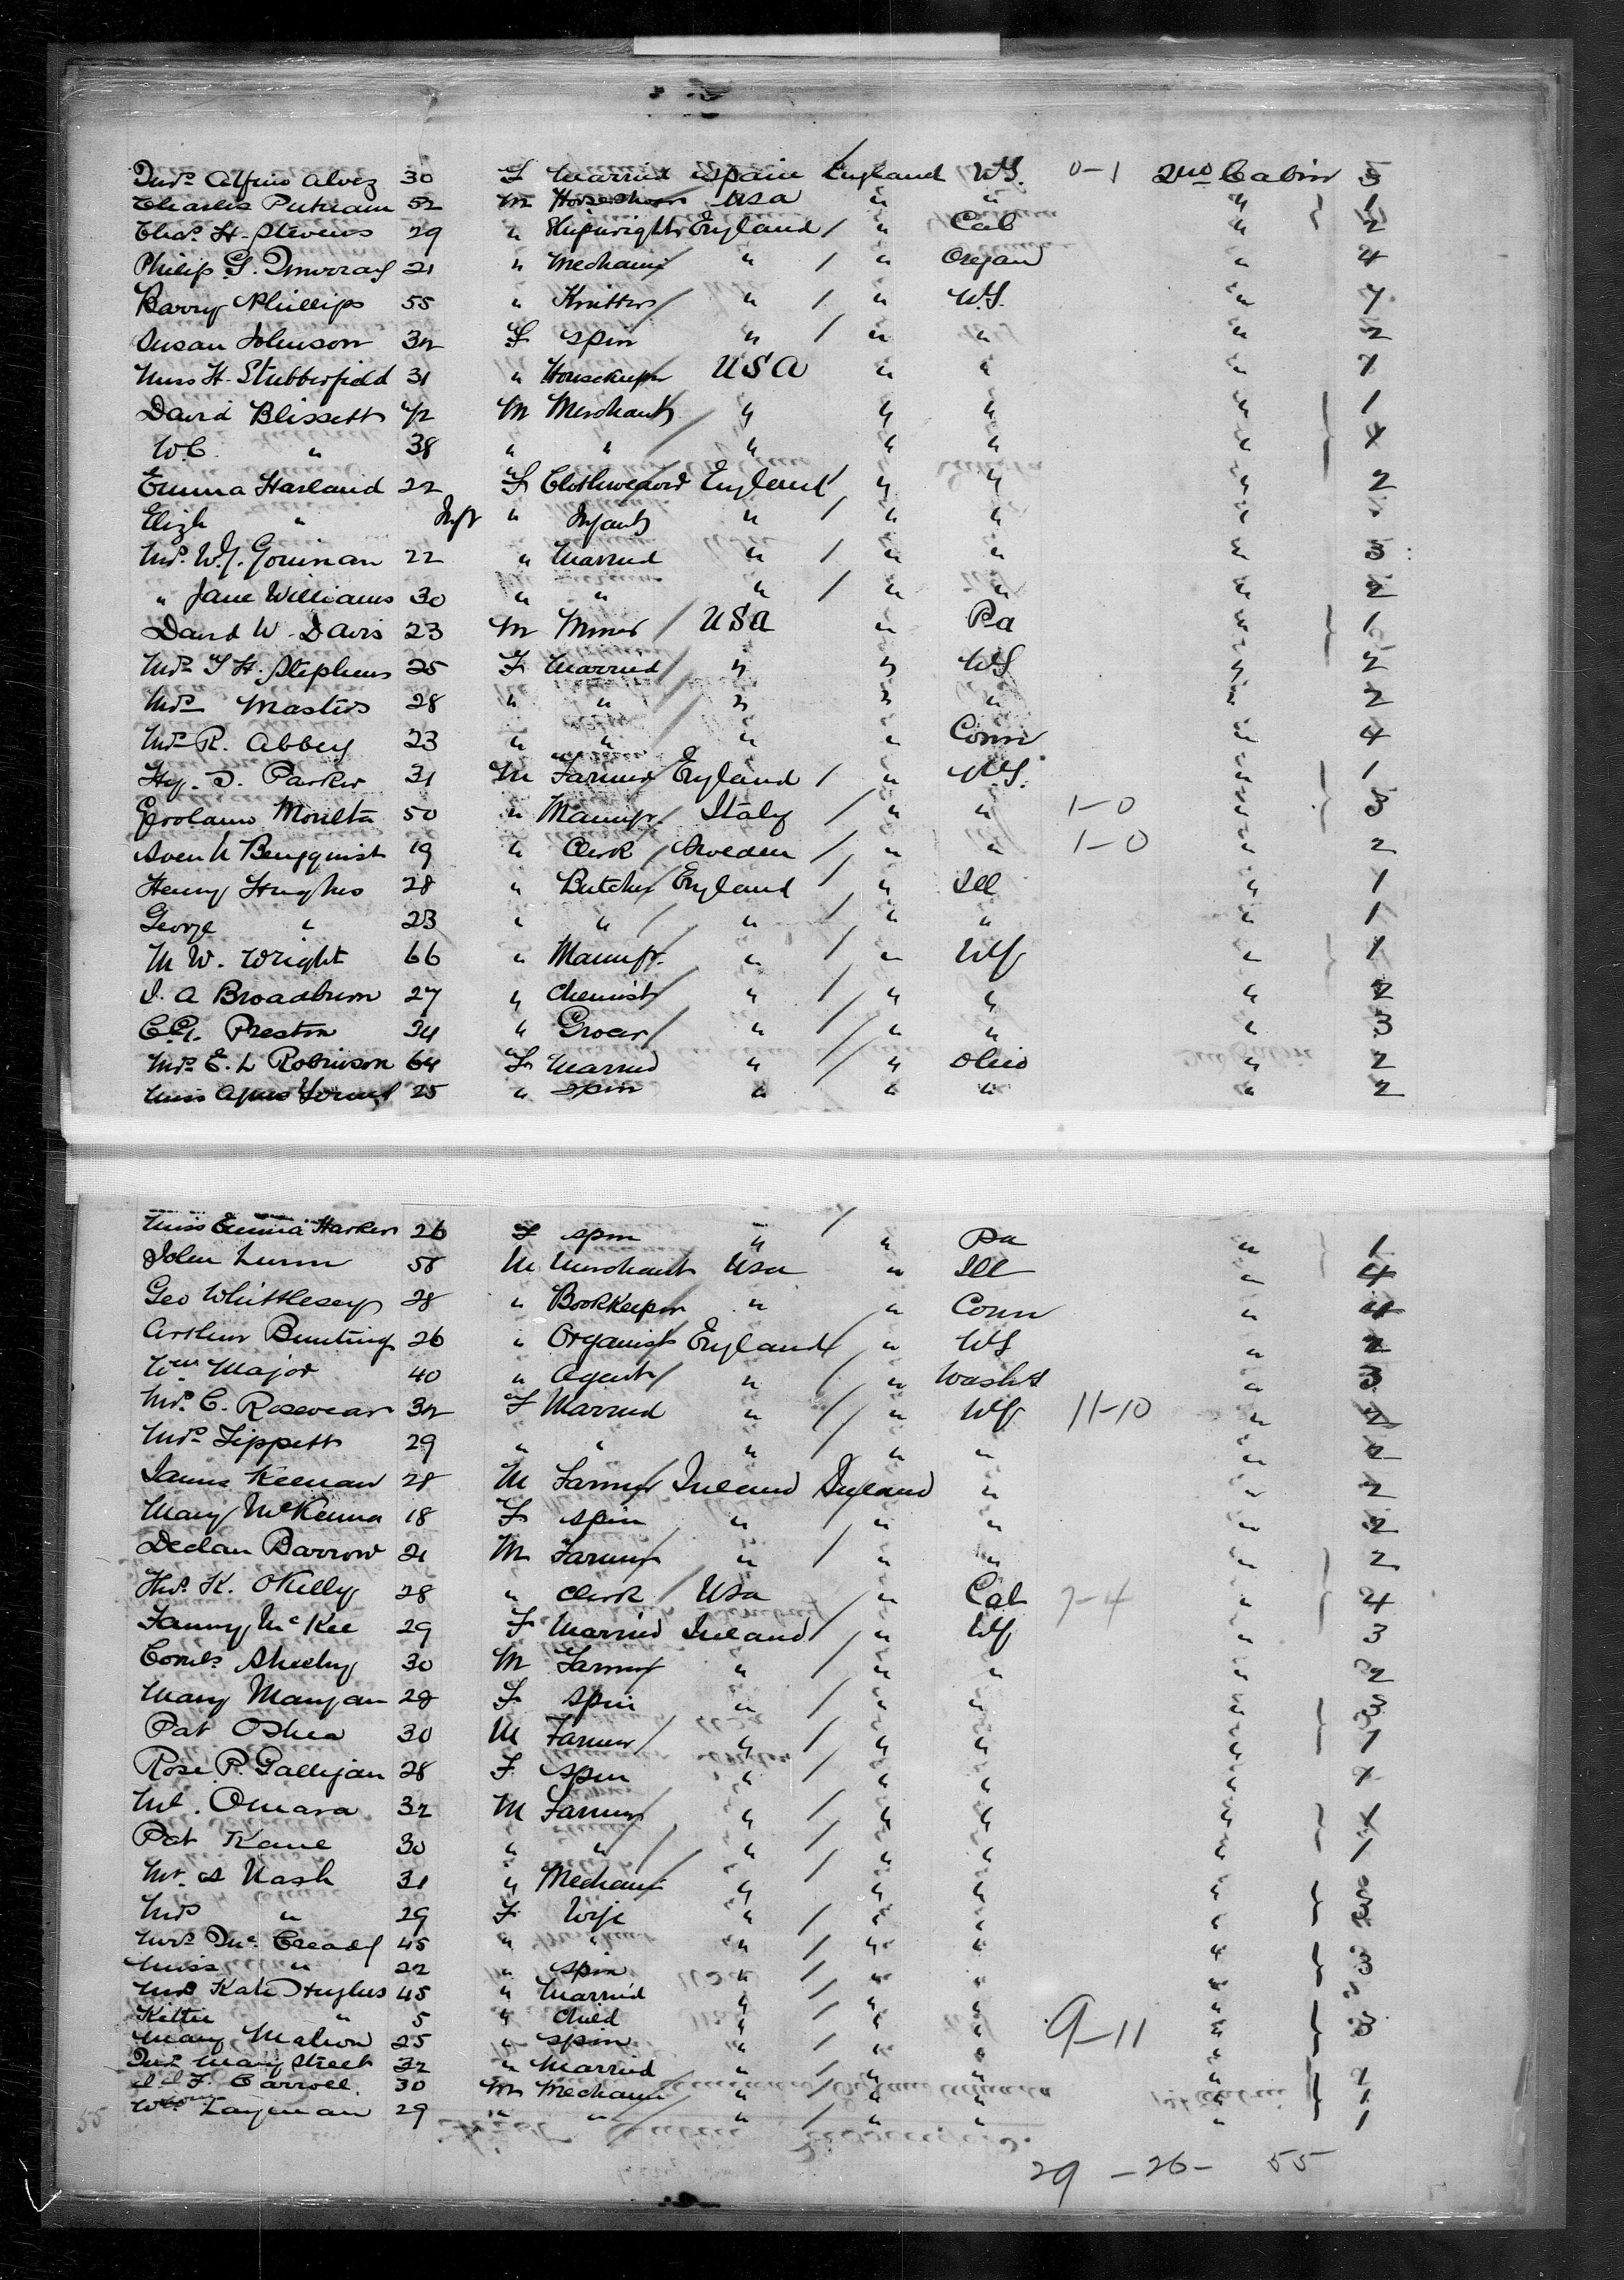 Mrs Alfino Alvez 30 F Married Spain England NY. 0-1 2nd Cabin 5
Charles Putnam 52 M USA " " " 1
Chas. H. Stevens 29 " Shipwright England " Cal " 2
Philip G. Murray 21 " Mechanic " " Oregon " 4
Barry Phillips 55 " Knitter " " NY. " 7
Susan Johnson 32 F Spin " " " " 2
Miss H. Stubberfield 31 " Housekeeper USA " " " 1
David Blissett 42 M Merchant " " " " 1
W.C. " 38 " " " " " " 1
Emma Harland 22 F England " " " 2
Eliza " Inft " Infant " " " "
Mrs. W.J. Gorman 22 " Married " " " " 3
" Jane Williams 30 " " " " " " 2
David W. Davis 23 M Miner USA " Pa " 1
Mrs T H. Stephens 25 F Married " " NY " 2
Mrs Masters 28 " " " " " " 2
Mrs R. Abbey 23 " " " " Conn " 4
Hy. D. Parker 31 M Farmer England " NY. " 1
50 " Manufr. Italy " " 1-0 " 3
Sven N Bengquist 19 " Clerk Sweden " " 1-0 " 2
Henry Hughes 28 " Butcher England " Ill " 1
George " 23 " " " " " " 1
M W. Wright 66 " Manufr. " " NY " 1
J. A Broadbum 27 " Chemist " " " " 2
C.G. Preston 34 " Grocer " " " " 3
Mrs E. L Robinson 64 F Married " " Ohio " 2
Miss Agnes 25 " Spin " " " " 2
Miss Emma Harker 26 F Spin " " Pa " 1
John Lunn 58 M Merchant USA " Ill " 4
Geo Whittlesey 28 " Bookkeeper " " Conn " 4
Arthur Bunting 26 " Organist England " NY " 2
Wm Major 40 " Agent " " Wash. " 3
Mrs C. Rosevear 32 F Married " " NY 11-10 " 2
Mrs Tippett 29 " " " " " " 2
James Keenan 28 M Farmer Ireland England " " 2
Mary McKenna 18 F Spin " " " " 2
Declan Barrow 21 M Farmer " " " " 2
Thos. K. OKelly 28 " Clerk USA " Cal 7-4 " 4
Fanny McKee 29 F Married Ireland " NY " 3
Cornls Sheehy 30 M Farmer " " " " 2
Mary Mangan 28 F Spin " " " " 3
Pat OShea 30 M Farmer " " " " 1
Rose P. Galligan 28 F Spin " " " " 1
Ml. Omara 32 M Farmer " " " " 1
Pat Kane 30 " " " " " " 1
Mr. A Nash 31 " Mechanic " " " "
Mrs " 29 F Wife " " " "
Mrs McCready 45 " " " " " " 3
Miss " 22 " Spin " " " "
Mrs Kate Hughes 45 " Married " " " "
Kittie " 5 " Child " " " " 3
Mary Mahon 25 " Spin " " " 9-11 "
Mrs Mary Street 32 " Married " " " " 2
J F. Carroll 30 M Mechanic " " " " 1
Wm Layman 29 " " " " " " 1
55
29 - 26 - 55